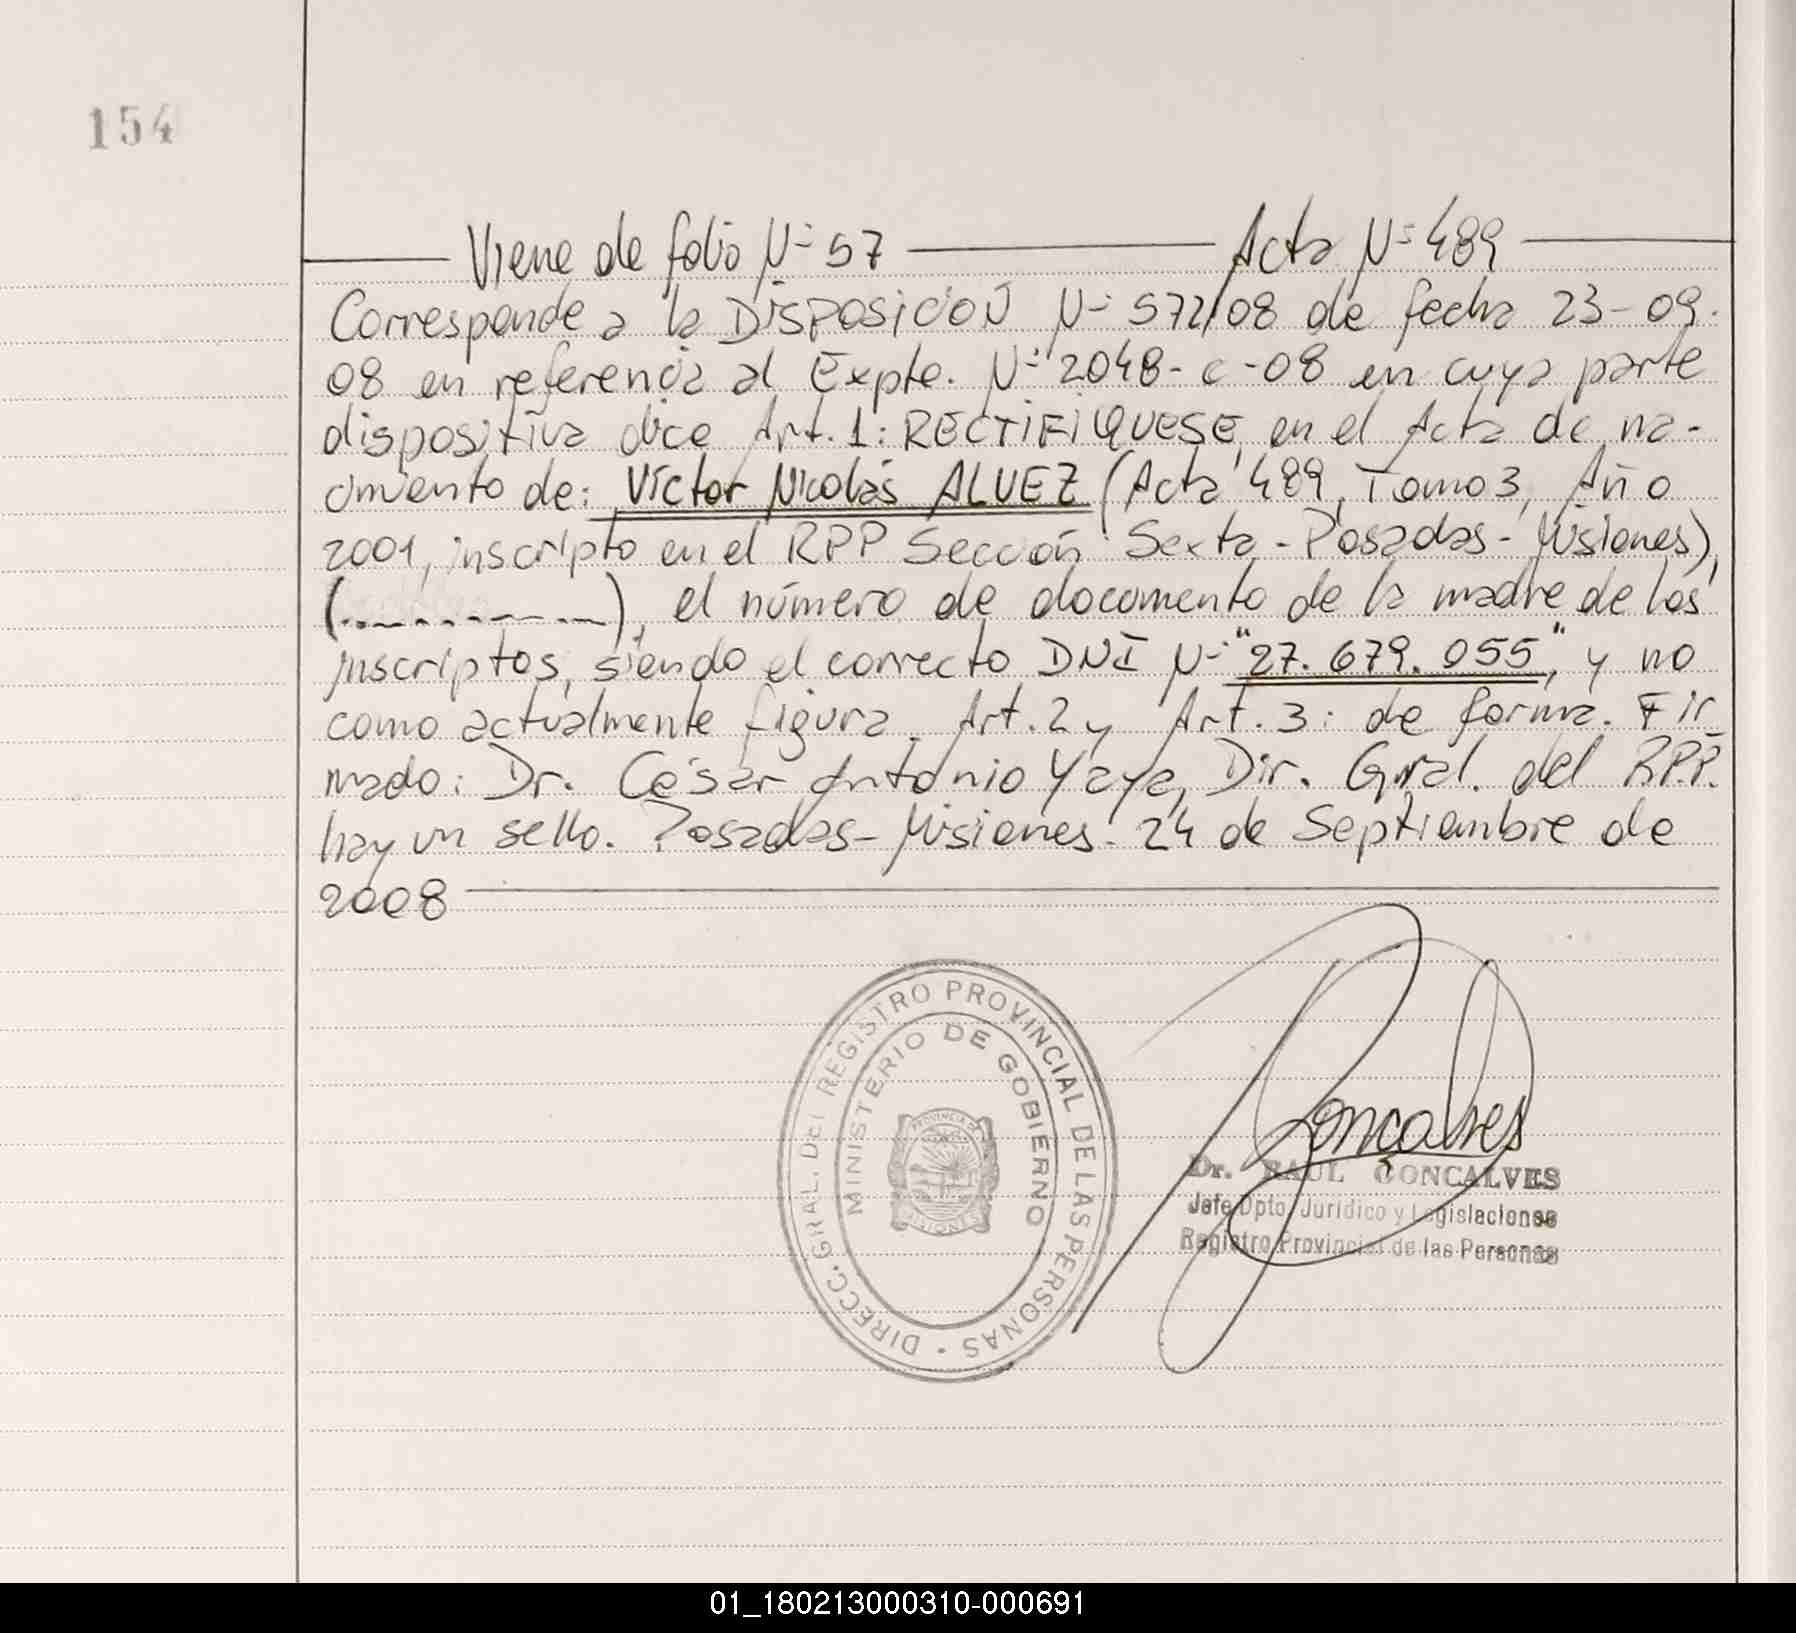 154
Viene de folio Nº 57 Acta Nº 489
Corresponde a la DISPOSICIÓN Nº 572/08 de fecha 23-09-
08 en referencia al Expte. Nº 2048-c-08 en cuya parte
dispositiva dice Art. 1: RECTIFIQUESE, en el Acta de na-
cimiento de: Víctor Nicolás ALVEZ (Acta 489, Tomo 3, Año
2001, inscripto en el RPP Sección Sexta - Posadas - Misiones),
(..........), el número de documento de la madre de los
inscriptos, siendo el correcto DNI Nº "27.679.055", y no
como actualmente figura. Art. 2 y Art. 3: de forma. Fir
mado: Dr. César Antonio Yaya, Dir. Gral. del R.P.P.
hay un sello. Posadas - Misiones. 24 de Septiembre de
2008
DIRECC. GRAL. DEL REGISTRO PROVINCIAL DE LAS PERSONAS
MINISTERIO DE GOBIERNO
PROVINCIA DE
MISIONES
Goncalves
Dr. RAUL GONCALVES
Jefe Dpto. Jurídico y Legislaciones
Registro Provincial de las Personas
01_180213000310-000691